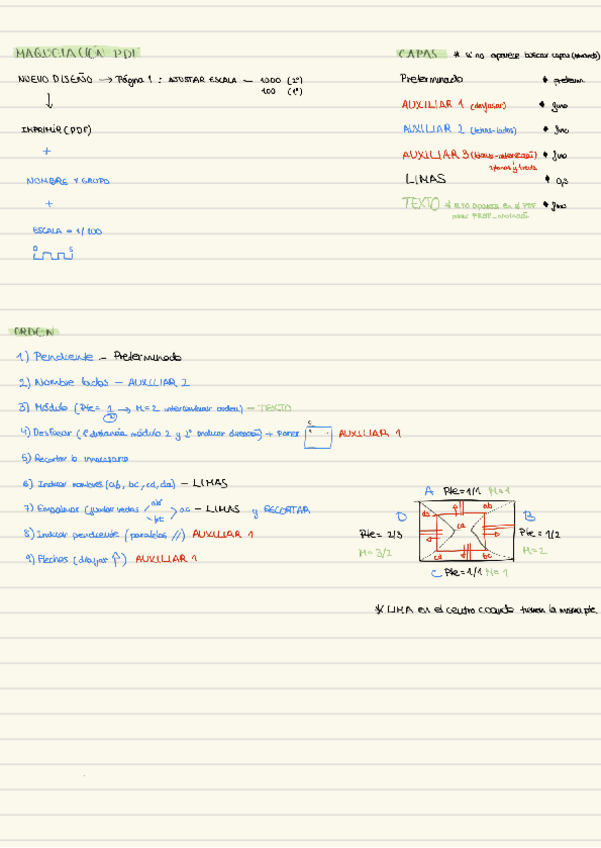 MAQUETACIÓN PDF
NUEVO DISEÑO → Página 1 : AJUSTAR ESCALA – 1000 (2º)
100 (1º)
IMPRIMIR (PDF)
+
NOMBRE Y GRUPO
+
ESCALA = 1/100
0 5
CAPAS * si no aparece buscar capas (comando)
Preterminado
AUXILIAR 1 (desfasar) * fino
AUXILIAR 2 (letras-lados) * fino
AUXILIAR 3 * fino
LIMAS * 0,3
TEXTO * si no aparece en el PDF * fino
ORDEN
1) Pendiente – Preterminado
2) Nombre lados – AUXILIAR 2
3) Módulo (Pte = 1/2 → M = 2 intercambiar orden) – TEXTO
4) Desfasar (1º distancia módulo 2 y 2º indicar dirección) + poner AUXILIAR 1
5) Recortar lo innecesario
6) Indicar nombres (ab, bc, cd, da) – LIMAS
7) Empalmar (juntar verdes ab bc > ac – LIMAS y RECORTAR
8) Indicar pendiente (paralelas //) AUXILIAR 1
9) Flechas (dibujar) AUXILIAR 1
A Pte = 1/1 M = 1
da ab
D ca B
Pte = 2/3 Pte = 1/2
M = 3/2 M = 2
cd bc
C Pte = 1/1 M = 1
* LIMA en el centro cuando tienen la misma pte.